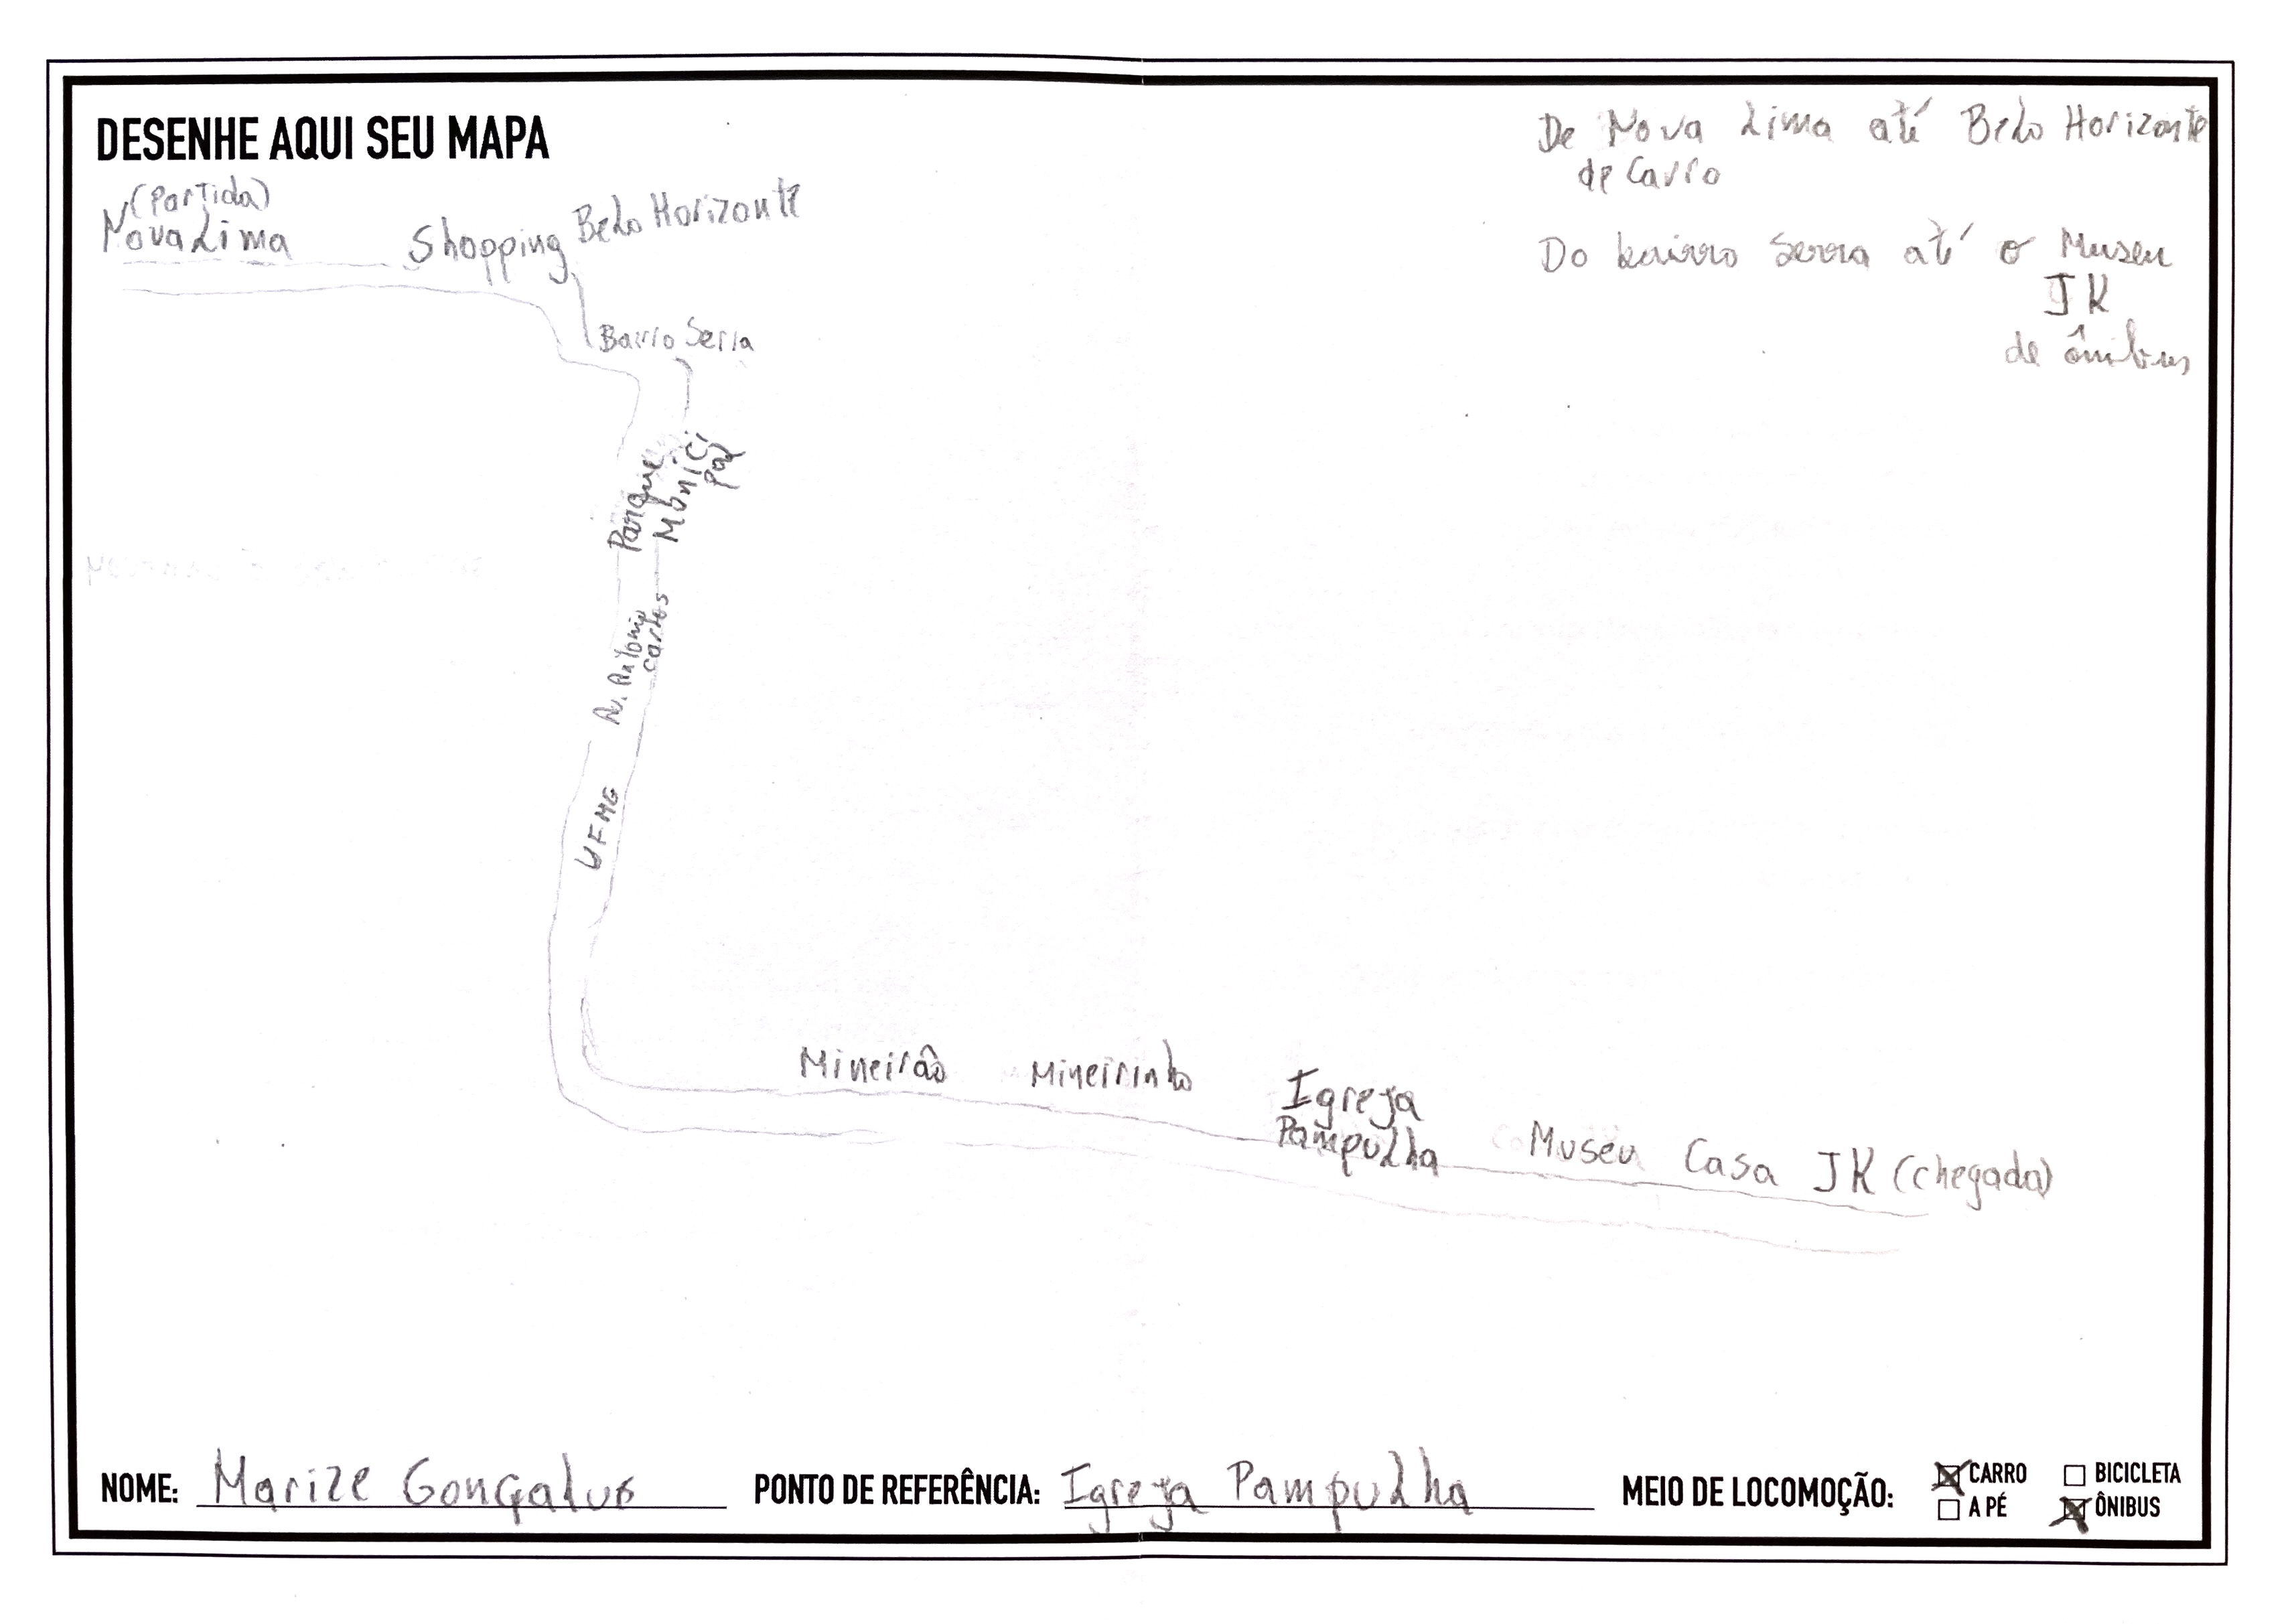 DESENHE AQUI SEU MAPA
De Nova Lima até Belo Horizonte
de Carro
Do bairro Serra até o Museu
JK
de ônibus
(Partida)
Nova Lima
Shopping
Belo Horizonte
Bairro Serra
Parque
Munici
pal
Av. Antonio
Carlos
UFMG
Mineirão
Mineirinho
Igreja
Pampulha
Museu Casa JK (chegada)
NOME: Marize Gonçalves
PONTO DE REFERÊNCIA: Igreja Pampulha
MEIO DE LOCOMOÇÃO:
CARRO
BICICLETA
A PÉ
ÔNIBUS